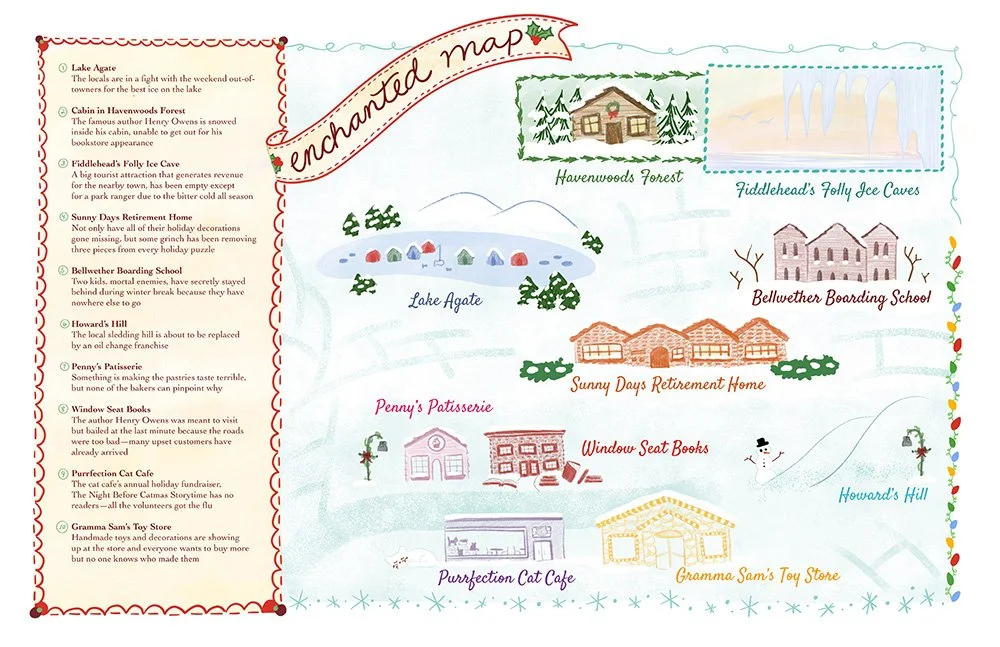 enchanted map
1 Lake Agate
The locals are in a fight with the weekend out-
towners for the best ice on the lake
2 Cabin in Havenwoods Forest
The famous author Henry Owens is snowed
inside his cabin, unable to get out for his
bookstore appearance
3 Fiddlehead's Folly Ice Cave
A big tourist attraction that generates revenue
for the nearby town, has been empty except
for a park ranger due to the bitter cold all season
4 Sunny Days Retirement Home
Not only have all of their holiday decorations
gone missing, but some grinch has been removing
three pieces from every holiday puzzle
5 Bellwether Boarding School
Two kids, mortal enemies, have secretly stayed
behind during winter break because they have
nowhere else to go
6 Howard's Hill
The local sledding hill is about to be replaced
by an oil change franchise
7 Penny's Patisserie
Something is making the pastries taste terrible,
but none of the bakers can pinpoint why
8 Window Seat Books
The author Henry Owens was meant to visit
but bailed at the last minute because the roads
were too bad—many upset customers have
already arrived
9 Purrfection Cat Cafe
The cat cafe's annual holiday fundraiser,
The Night Before Catmas Storytime has no
readers—all the volunteers got the flu
10 Gramma Sam's Toy Store
Handmade toys and decorations are showing
up at the store and everyone wants to buy more
but no one knows who made them
Havenwoods Forest
Fiddlehead's Folly Ice Caves
Lake Agate
Bellwether Boarding School
Sunny Days Retirement Home
Penny's Patisserie
Window Seat Books
Howard's Hill
Purrfection Cat Cafe
Gramma Sam's Toy Store